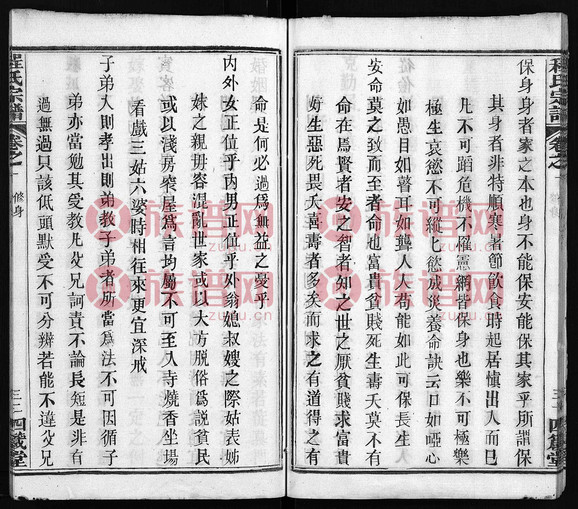 程氏宗譜
卷之一
修身
四箴堂
保身身者家之本也身不能保安能保其家乎所謂保
其身者非特順寒暑節飲食時起居慎出入而已
凡不可蹈危機不罹憲網皆保身也樂不可極樂
極生哀慾不可縱七慾成災養命訣云口如啞心
如愚目如瞽耳如聾人人苟能如此可保長生人
安命莫之致而至者命也富貴貧賤死生壽夭莫不有
命在焉賢者安之智者如之世之厭貧賤求富貴
好生惡死畏夭喜壽者多矣而求之有道得之有
命是何必過為無益之憂乎
內外女正位乎內男正位乎外翁媳叔嫂之際姑表姊
妹之親毋容混亂世家或以大方脫俗為說貧民
或以淺房窄屋為言均屬不可至入寺燒香坐場
看戲三姑六婆時相往來更宜深戒
子弟入則孝出則弟教子弟者所當為法不可因循子
弟亦當勉其受教凡父兄訶責不論長短是非有
過無過只該低頭默受不可分辨若能不違父兄
程氏宗譜
卷之一
修身
三十一
四箴堂
族譜网
族譜网
族譜网
族譜网